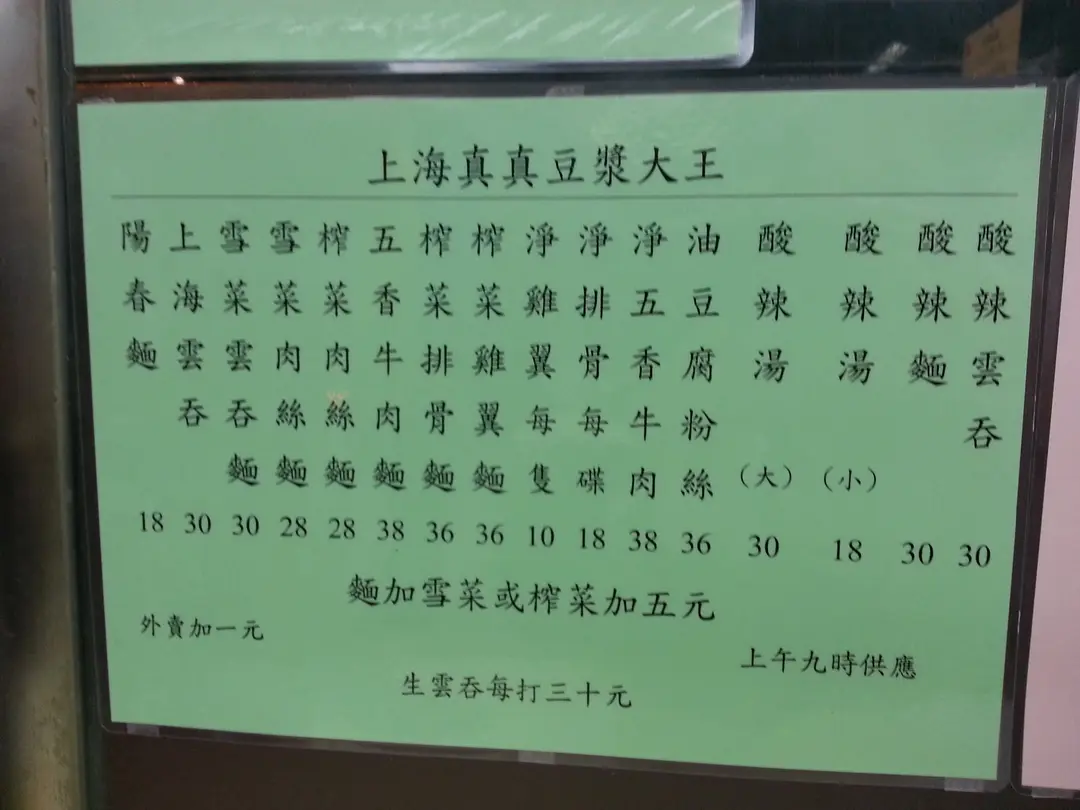 上海真真豆漿大王
陽春麵 18
上海雲吞 30
雪菜雲吞麵 30
雪菜肉絲麵 28
榨菜肉絲麵 28
五香牛肉麵 38
榨菜排骨麵 36
榨菜雞翼麵 36
淨雞翼每隻 10
淨排骨每碟 18
淨五香牛肉 38
油豆腐粉絲 36
酸辣湯（大） 30
酸辣湯（小） 18
酸辣麵 30
酸辣雲吞 30
麵加雪菜或榨菜加五元
外賣加一元
上午九時供應
生雲吞每打三十元